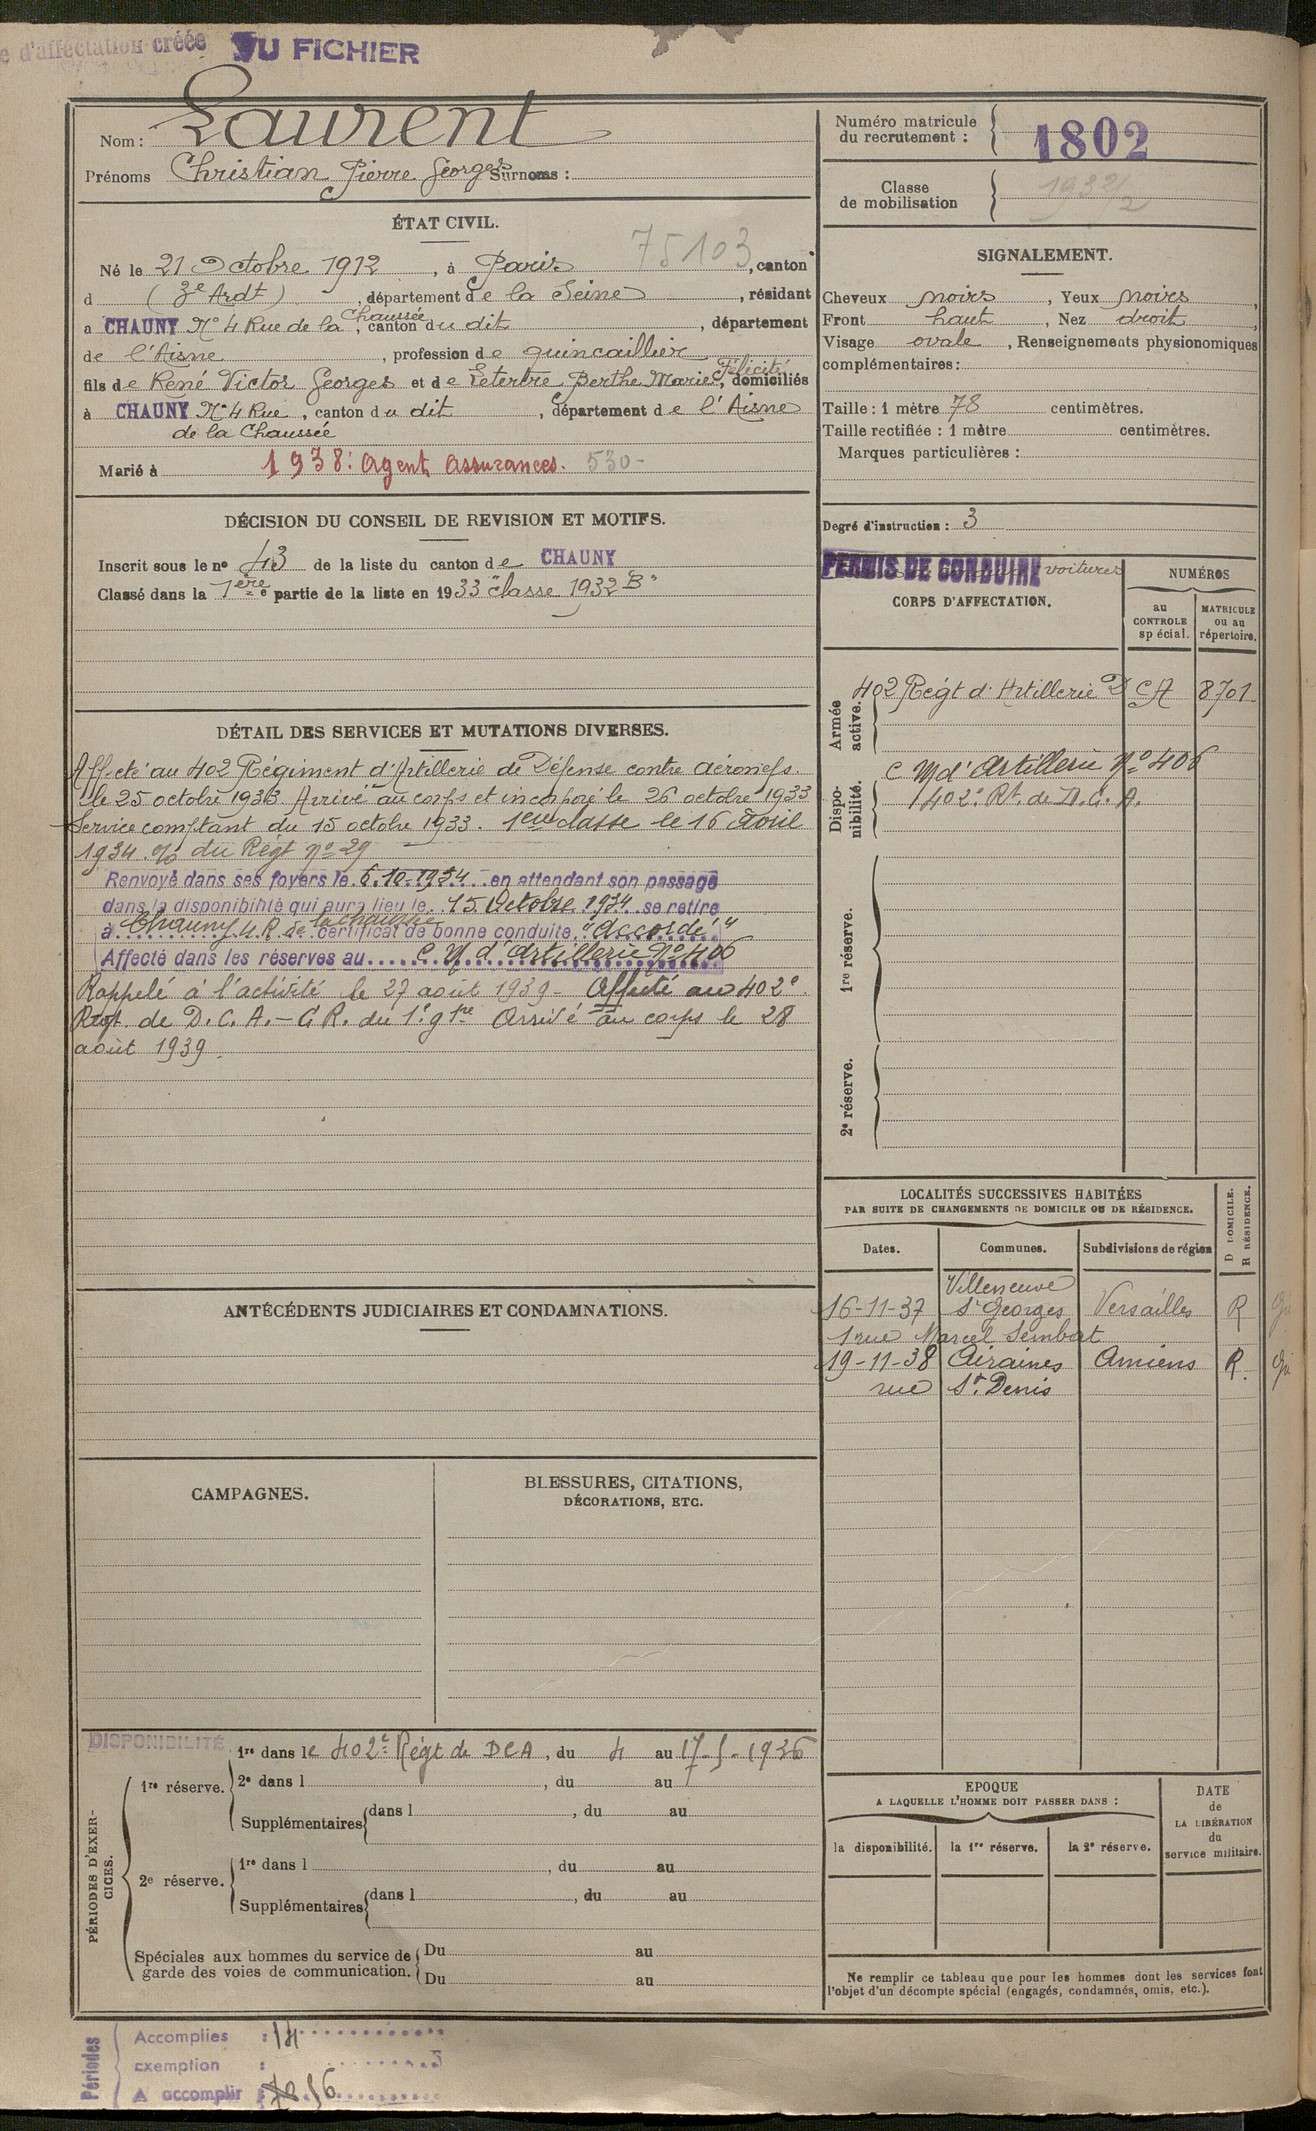 e d'affectation créée VU FICHIER
Nom : Laurent
Prénoms Christian Pierre Georges Surnoms :
ÉTAT CIVIL.
75103
Né le 21 Octobre 1912, à Paris, canton
d (3e Ardt), département de la Seine, résidant
Chaussée
a CHAUNY No 4 Rue de la, canton du dit, département
de l'Aisne, profession de quincaillier
Félicité
fils de René Victor Georges et de Letertre Berthe Marie, domiciliés
à CHAUNY No 4 Rue, canton du dit, département de l'Aisne
de la Chaussée
Marié à 1938: agent assurances. 530-
DÉCISION DU CONSEIL DE REVISION ET MOTIFS.
Inscrit sous le no 43 de la liste du canton de CHAUNY
Classé dans la 1ère partie de la liste en 1933 "classe 1932 B"
DÉTAIL DES SERVICES ET MUTATIONS DIVERSES.
Affecté au 402 Régiment d'Artillerie de Défense contre aéronefs
le 25 octobre 1933 Arrivé au corps et incorporé le 26 octobre 1933
Service comptant du 15 octobre 1933. 1ere classe le 16 Avril
1934 % du Régt No 29
Renvoyé dans ses foyers le 6.10.1934 en attendant son passage
dans la disponibilité qui aura lieu le 15 Octobre 1934 se retire
la chaussée
à Chauny 4 R. de certificat de bonne conduite "Accordé"
Affecté dans les réserves au C M d'Artillerie No 406
Rappelé à l'activité le 27 août 1939 - Affecté au 402e
Regt de D.C.A. - G R. du 1e gre Arrivé au corps le 28
août 1939.
ANTÉCÉDENTS JUDICIAIRES ET CONDAMNATIONS.
CAMPAGNES.
BLESSURES, CITATIONS,
DÉCORATIONS, ETC.
PÉRIODES D'EXERCICES.
DISPONIBILITÉ
1re réserve.
1re dans le 402e Régt de DCA, du 4 au 17-5-1936
2e dans l, du au
Supplémentaires dans l, du au
2e réserve.
1re dans l, du au
Supplémentaires dans l, du au
Spéciales aux hommes du service de
garde des voies de communication.
Du au
Du au
Périodes
Accomplies : 14
Exemption :
A accomplir : 56
Numéro matricule
du recrutement : 1802
Classe
de mobilisation 1932/2
SIGNALEMENT.
Cheveux noirs, Yeux noirs,
Front haut, Nez droit,
Visage ovale, Renseignements physionomiques
complémentaires :
Taille : 1 mètre 78 centimètres.
Taille rectifiée : 1 mètre centimètres.
Marques particulières :
Degré d'instruction : 3
PERMIS DE CONDUIRE voitures
CORPS D'AFFECTATION.
NUMÉROS
au
CONTROLE
spécial.
MATRICULE
ou au
répertoire.
Armée
active.
402 Régt d'Artillerie D CA 8701
Disponibilité.
C M d'Artillerie No 406
402e Rt. de D.C.A.
1re réserve.
2e réserve.
LOCALITÉS SUCCESSIVES HABITÉES
PAR SUITE DE CHANGEMENTS DE DOMICILE OU DE RÉSIDENCE.
D DOMICILE.
R RÉSIDENCE.
Dates. Communes. Subdivisions de région
Villeneuve
16-11-37 St Georges Versailles R
1 rue Marcel Sembat
19-11-38 Airaines Amiens R.
rue St. Denis
EPOQUE
A LAQUELLE L'HOMME DOIT PASSER DANS :
la disponibilité. la 1re réserve. la 2e réserve.
DATE
de
LA LIBÉRATION
du
service militaire.
Ne remplir ce tableau que pour les hommes dont les services font
l'objet d'un décompte spécial (engagés, condamnés, omis, etc.).